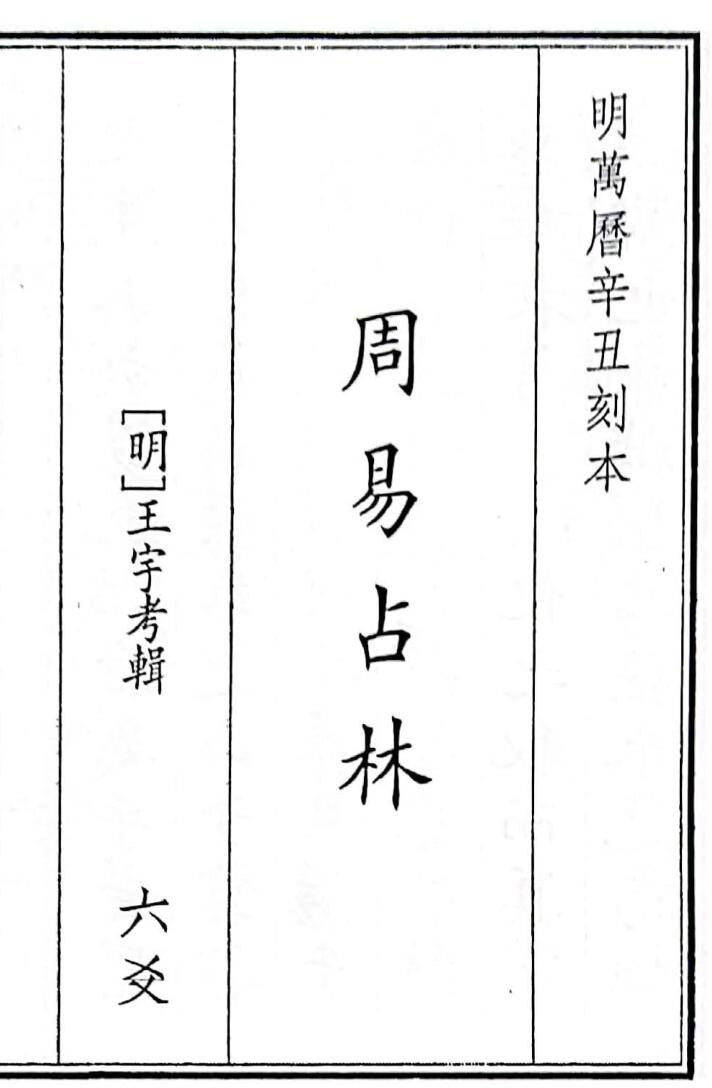 明萬曆辛丑刻本
周易占林
[明]王宇考輯
六爻